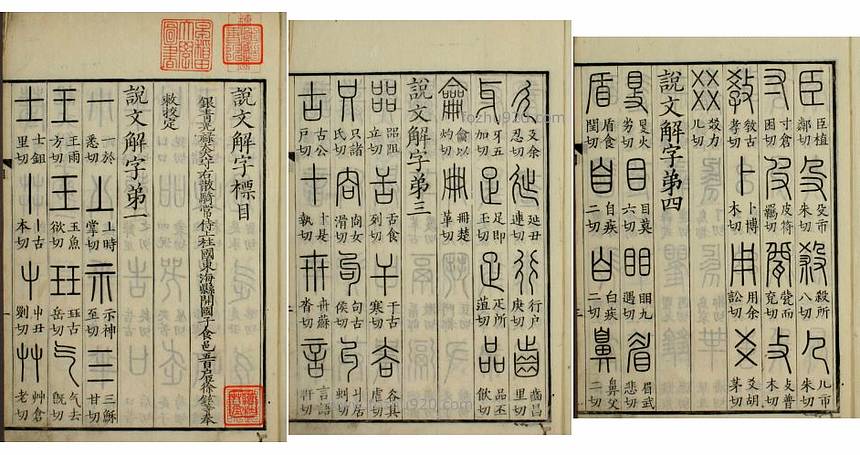 說文解字標目
銀青光祿大夫守右散騎常侍上柱國東海縣開國子食邑五百戶臣徐鉉等奉
敕校定
說文解字弟一
一 一於悉切 丄 丄時掌切 示 示神至切 三 三穌甘切
王 王雨方切 王 玉魚欲切 玨 玨古岳切 气 气去旣切
士 士鉏里切 丨 丨古本切 屮 屮丑劉切 艸 艸倉老切
廴 廴余忍切 㢟 㢟丑連切 行 行戶庚切 齒 齒昌里切
牙 牙五加切 足 足即玉切 疋 疋所菹切 品 品丕飲切
龠 龠以灼切 冊 冊楚革切
說文解字弟三
㗊 㗊阻立切 舌 舌食列切 干 干古寒切 谷 谷其虐切
只 只諸氏切 㕯 㕯女滑切 句 句古侯切 丩 丩居虯切
古 古公戶切 十 十是執切 卅 卅蘇沓切 言 言語軒切
臣 臣植鄰切 殳 殳市朱切 殺 殺所八切 𠘧 𠘧市朱切
寸 寸倉困切 皮 皮符羈切 㼱 㼱而兗切 攴 攴普木切
敎 敎古孝切 卜 卜博木切 用 用余訟切 爻 爻胡茅切
㸚 㸚力几切
說文解字弟四
𡕥 𡕥火劣切 目 目莫六切 䀠 䀠九遇切 眉 眉武悲切
盾 盾食閏切 自 自疾二切 白 白疾二切 鼻 鼻父二切
fozhu920.com